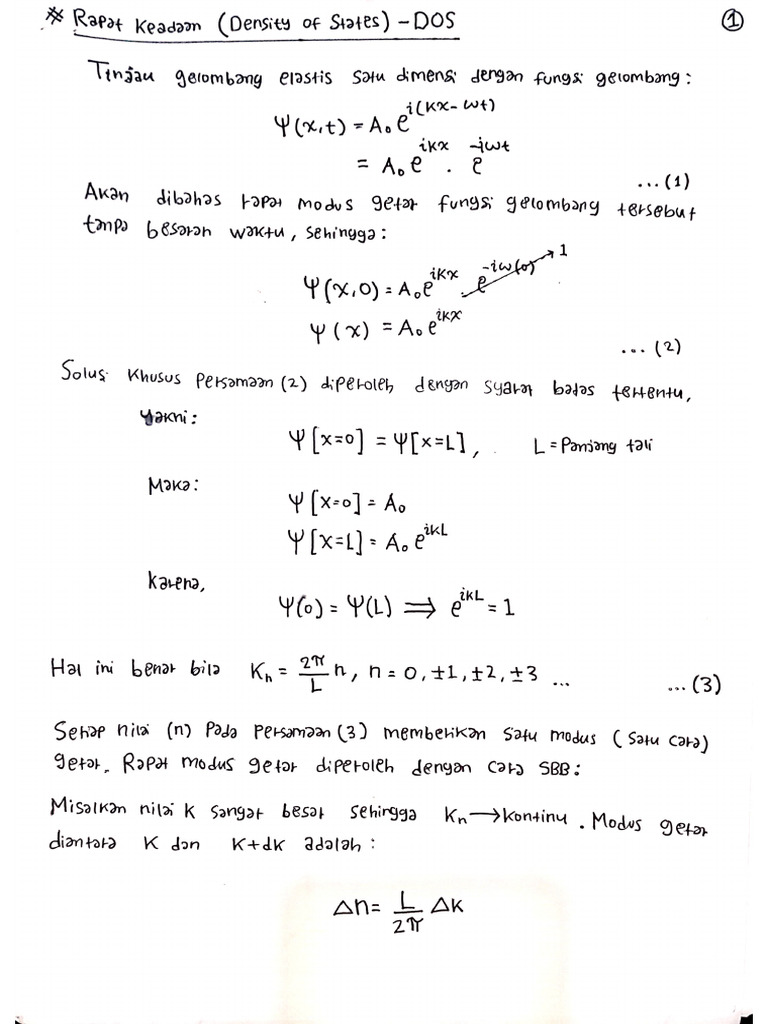 * Rapat Keadaan (Density of States) – DOS
1
Tinjau gelombang elastis satu dimensi dengan fungsi gelombang :
Ψ(x,t) = A₀ e^{i(kx-ωt)}
= A₀ e^{ikx} . e^{-iωt}
... (1)
Akan dibahas rapat modus getar fungsi gelombang tersebut
tanpa besaran waktu, sehingga :
Ψ(x,0) = A₀ e^{ikx} . e^{-iω(0)} → 1
Ψ(x) = A₀ e^{ikx}
... (2)
Solusi khusus persamaan (2) diperoleh dengan syarat batas tertentu,
yakni :
Ψ[x=0] = Ψ[x=L] , L = Panjang tali
Maka :
Ψ[x=0] = A₀
Ψ[x=L] = A₀ e^{ikL}
Karena,
Ψ(0) = Ψ(L) ⟹ e^{ikL} = 1
Hal ini benar bila Kₙ = 2π/L n, n = 0, ±1, ±2, ±3 ... ... (3)
Setiap nilai (n) pada persamaan (3) memberikan satu modus (satu cara)
getar. Rapat modus getar diperoleh dengan cara SBB :
Misalkan nilai k sangat besar sehingga Kₙ → kontinu . Modus getar
diantara K dan K+dk adalah :
Δn = L/2π Δk